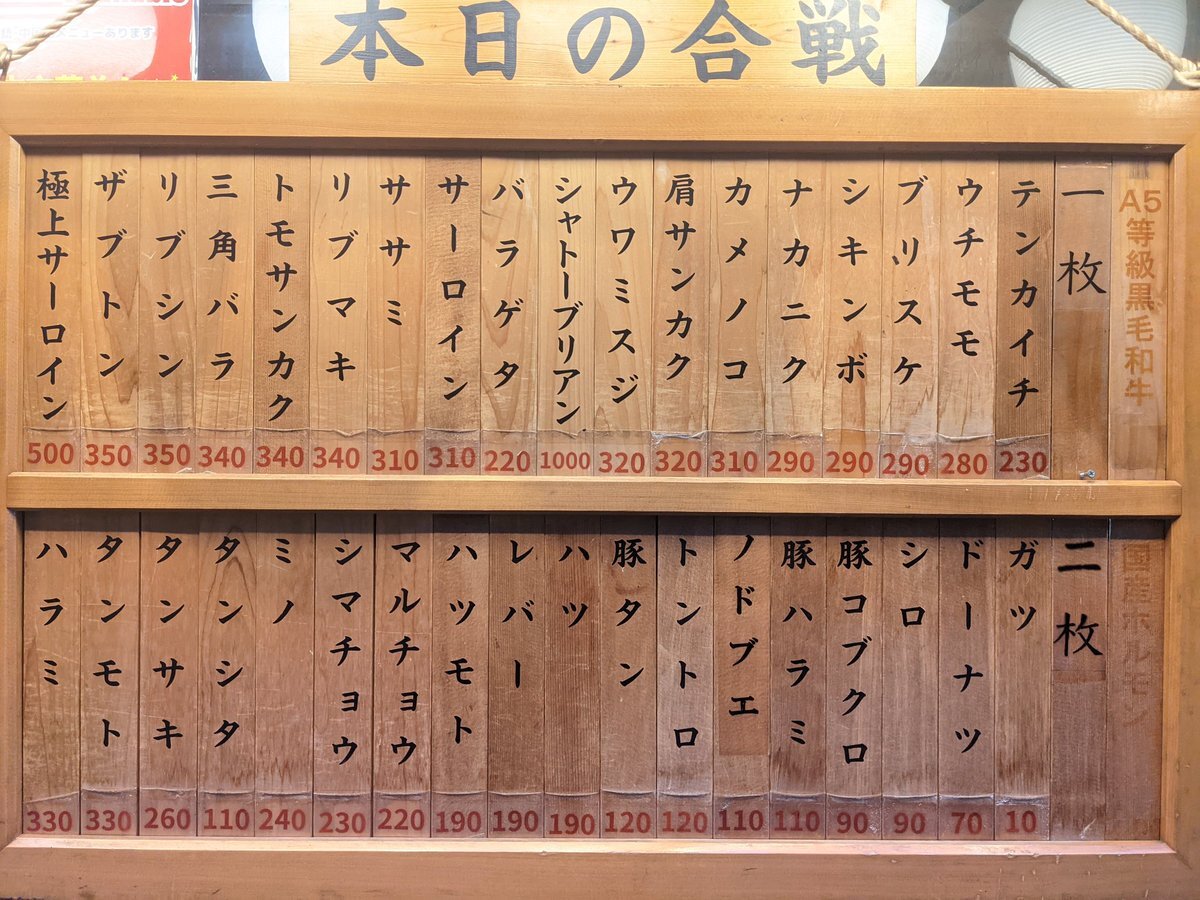 本日の合戦
ニューあります
A5等級黒毛和牛
一枚
テンカイチ 230
ウチモモ 280
ブリスケ 290
シキンボ 290
ナカニク 290
カメノコ 310
肩サンカク 320
ウワミスジ 320
シャトーブリアン 1000
バラゲタ 220
サーロイン 310
ササミ 310
リブマキ 340
トモサンカク 340
三角バラ 340
リブシン 350
ザブトン 350
極上サーロイン 500
国産ホルモン
二枚
ガツ 10
ドーナツ 70
シロ 90
豚コブクロ 90
豚ハラミ 110
ノドブエ 110
トントロ 120
豚タン 120
ハツ 190
レバー 190
ハツモト 190
マルチョウ 220
シマチョウ 230
ミノ 240
タンシタ 110
タンサキ 260
タンモト 330
ハラミ 330